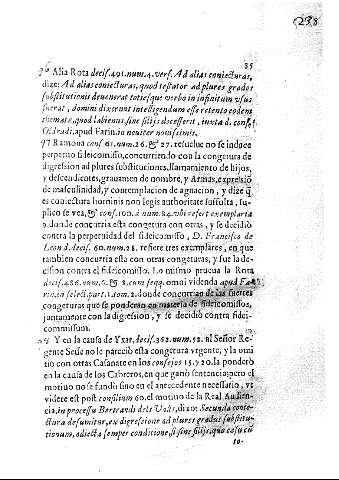 (288
35
76 Asia Rota decis. 491. num. 4. vers. Ad alias coniecturas,
dize: Ad alias coniecturas, quod testator ad plures gradus
substitutionis deuenerat totiesque verbo in infinitum vsus
fuerat, domini dixerunt intelligendum esse retento eodem
themate, quod labienus, sine filijs decesserit, iuxta d. cons.
Oldradi, apud Farin. in nouiter nouissimis.
77 Ramona cons. 61. num. 26. & 27. resuelue no se induce
perpetuo fideicomisso, concurriendo con la congetura de
digression ad plures substitutiones, llamamiento de hijos,
y descendientes, grauamen de nombre, y Armas, expresion
de masculinidad, y contemplacion de agnacion, y dize q
es coniectura hominis non legis authoritate suffulta, su-
plico se vea, & cons. 100. à num. 84. vbi refert exemplaria
9. donde concurria esta congetura con otras, y se decidiò
contra la perpetuidad del fideicomisso, D. Francisco de
Leon decis. 60. num. 28. refiere tres exemplares, en que
tambien concurria esta con otras congeturas, y fue la de-
cision contra el fideicomisso. Lo mismo prueua la Rota
decis. 486. num. 6. & 8. cum seqq. omni videnda apud Fa-
rin. in select. part. 1. tom. 2. donde concurrian de las fuertes
congeturas que se ponderan en materia de fideicomissos,
juntamente con la digression, y se decidiò contra fidei-
commissum.
78 Y en la causa de Yxar, decis. 362. num. 52. al Señor Re-
gente Sesse no le pareciò esta congetura vrgente, y la omi
tiò con otras Casanate en los consejos 15. y 20. la ponderò
en la causa de los Cabreros, en que ganò sentencia: pero el
motiuo no se fundò sino en el antecedente necessario, vt
videre est post consilium 60. el motiuo de la Real Audien-
cia, in processu Bertrandi dels Valls, dixo: Secunda conie-
ctura desumitur, ex digressione ad plures gradus substitu-
tionum, adiecta semper conditione, si sine filijs, quo casu cū
to-